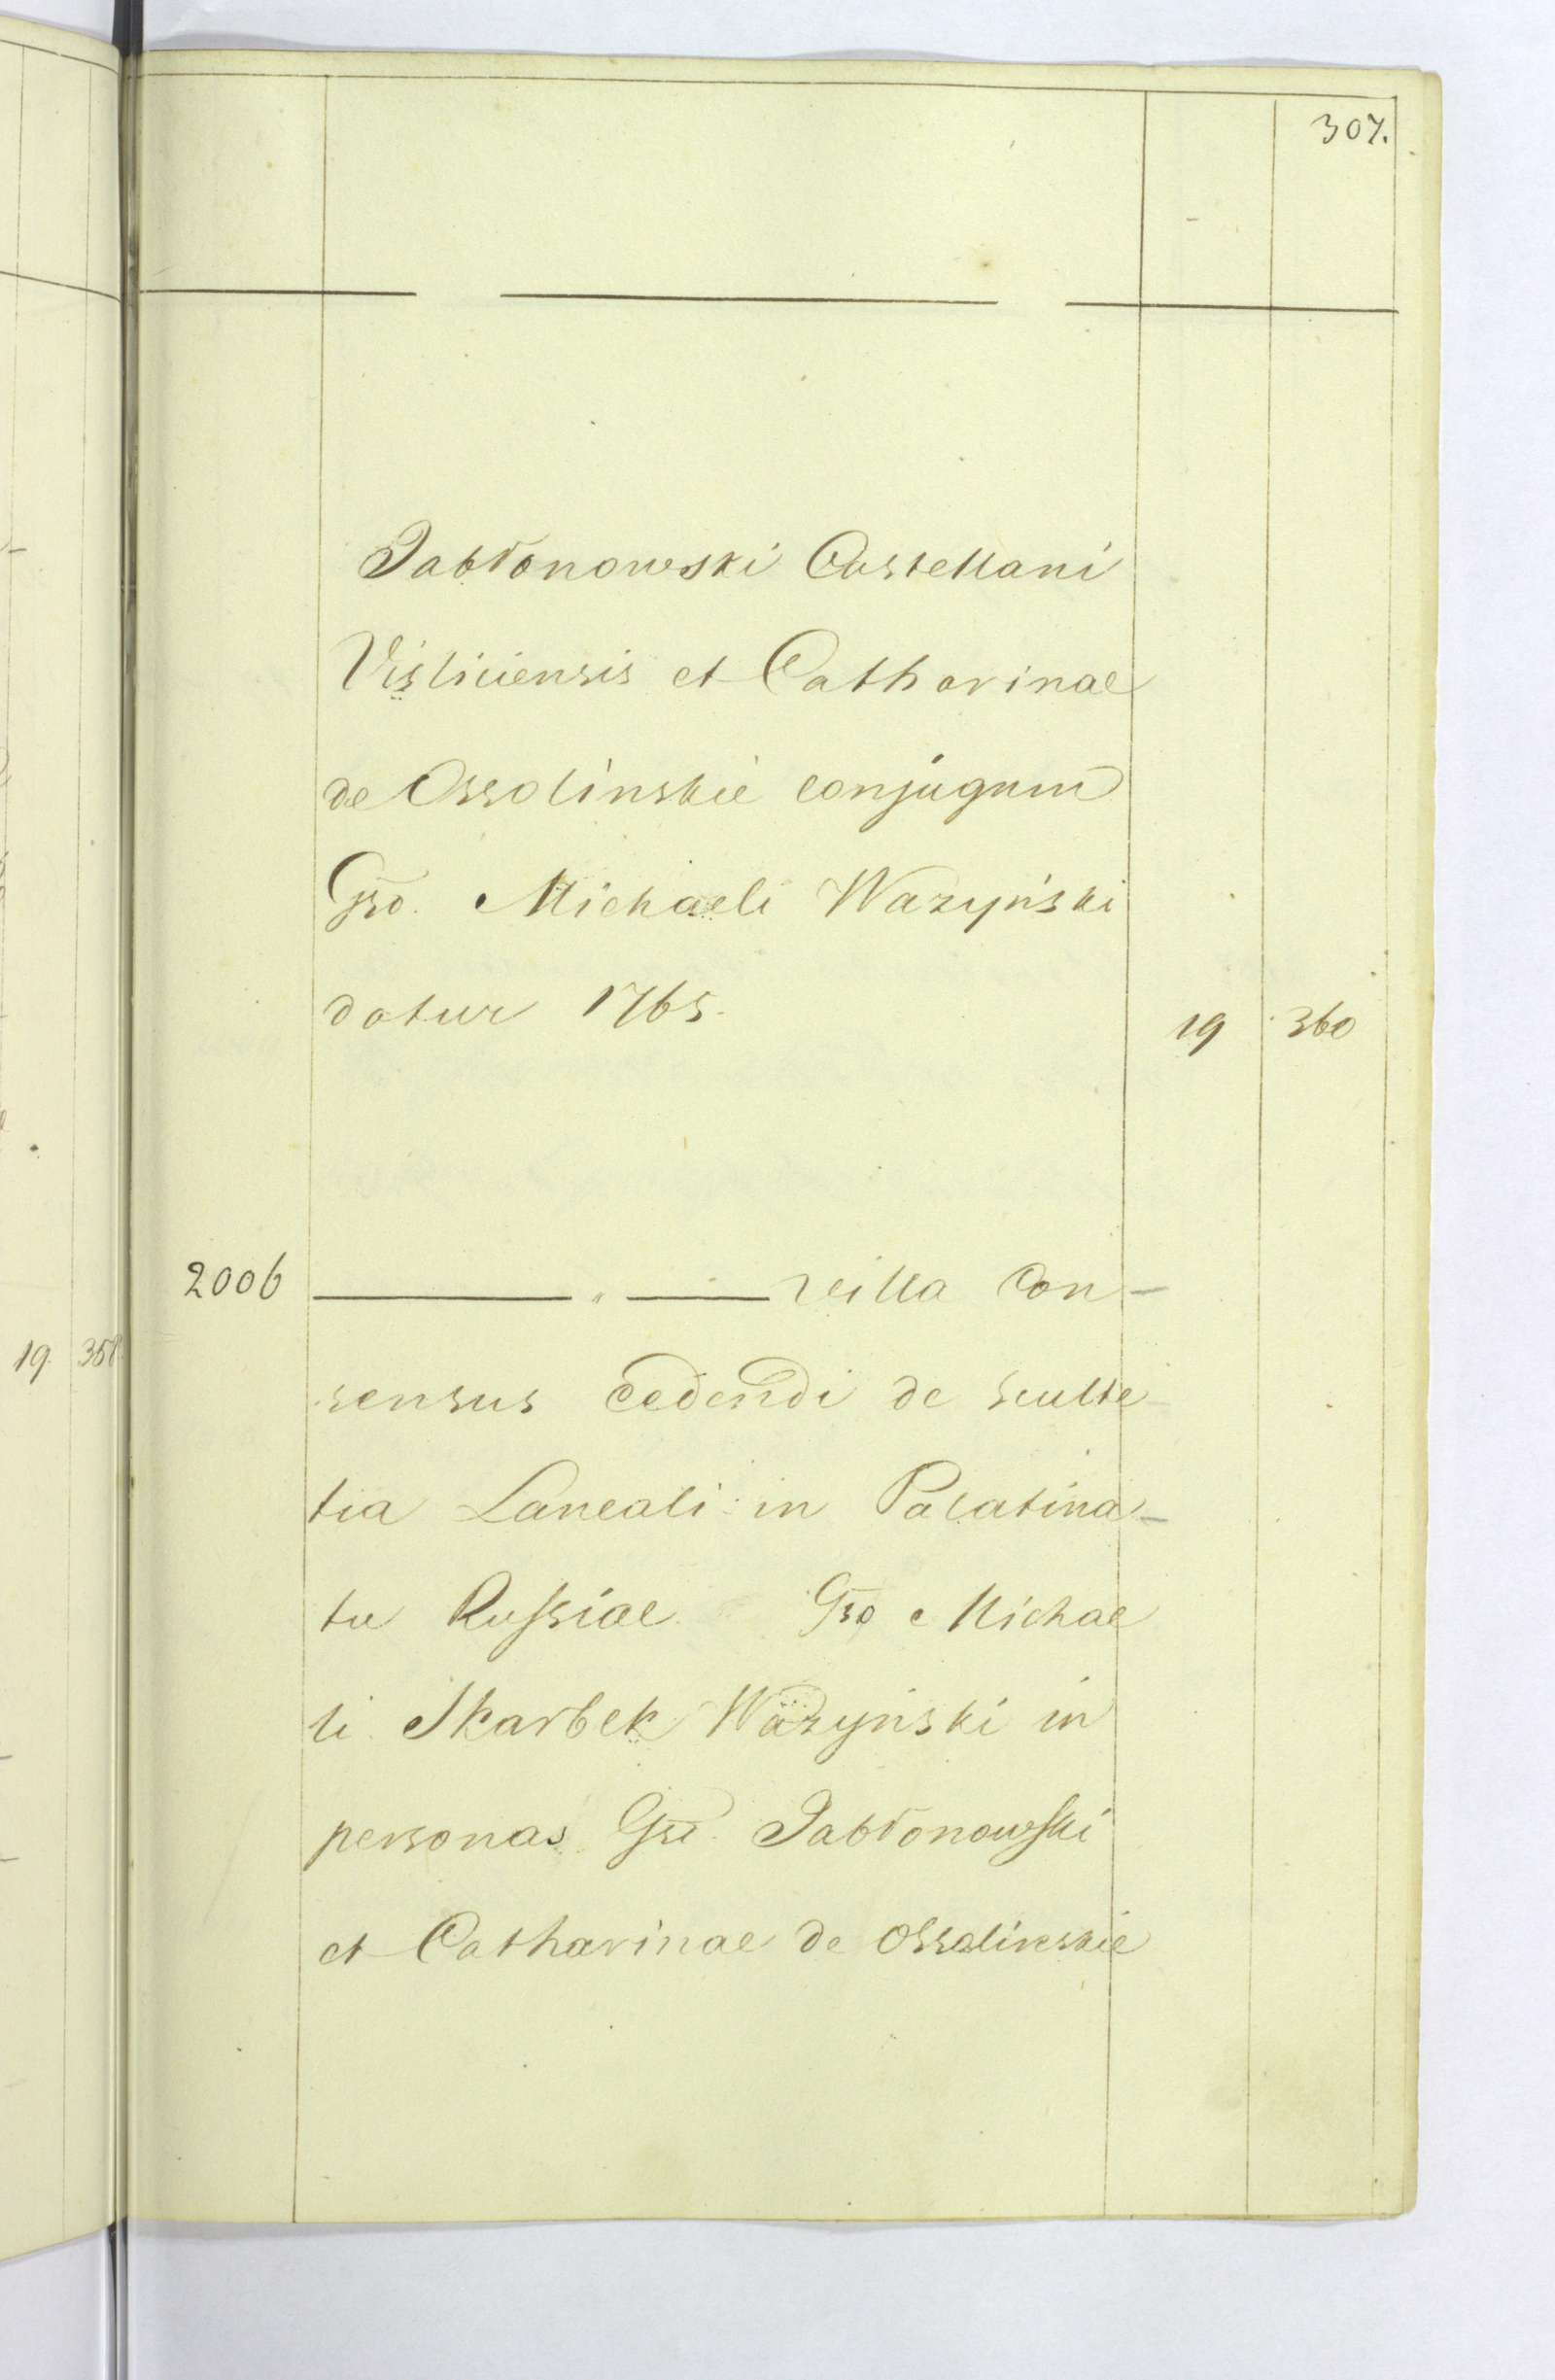 307.
Jabłonowski Castellani
Visliciensis et Catharinae
de Ossolinskie conjugum
Gso. Michaeli Wazyński
datur 1765.
19 360
2006 " villa Con-
sensus cedendi de sculte-
tia Laneali in Palatina-
tu Russiae Gso Michae
li Skarbek Wazyński in
personas Gsi. Jabłonowski
et Catharinae de Ossolinskie
19. 358.